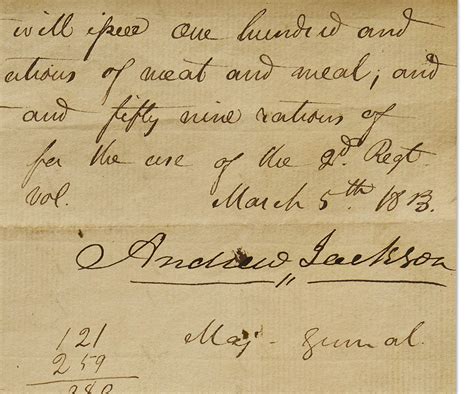 will issue one hundred and
rations of meat and meal, and
and fifty nine rations of
for the use of the 2d Regt.
vol. March 5th 1813.
Andrew Jackson
121 Maj - General
259
380